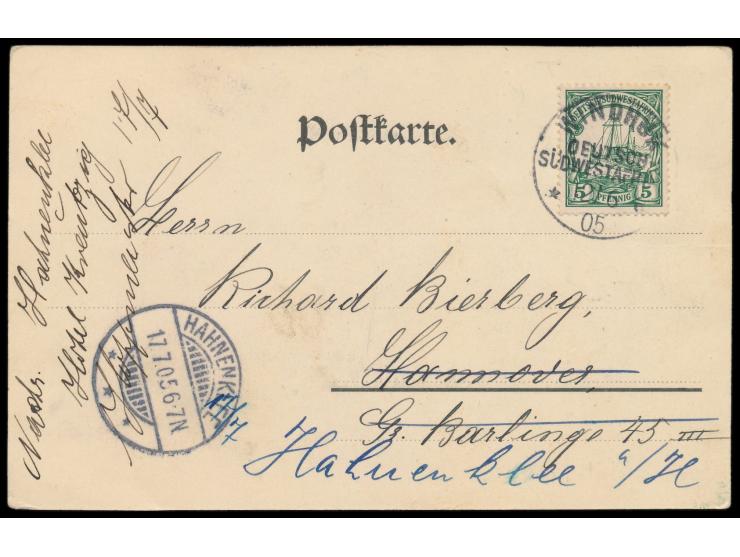 Postkarte.
DEUTSCH-SÜDWESTAFRIKA
5 PFENNIG 5
WINDHUK
DEUTSCH
SÜDWESTAFRIKA
05
Herrn
Richard Bierberg,
Hannover,
Gr. Barlinge 45 III
Hahnenklee a/H
HAHNENKLEE
17.7.05.6-7N
17/7
Nachs.
Hahnenklee
Hotel Kreutzig
17/7